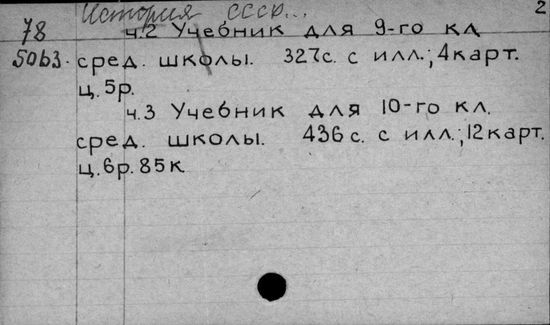 История СССР... 2
78 ч.2 Учебник для 9-го кл
50б3. сред. школы. 327с. с илл.; 4карт.
ц.5р.
ч.3 Учебник для 10-го кл.
сред. школы. 436с. с илл.; 12карт.
ц.6р.85к